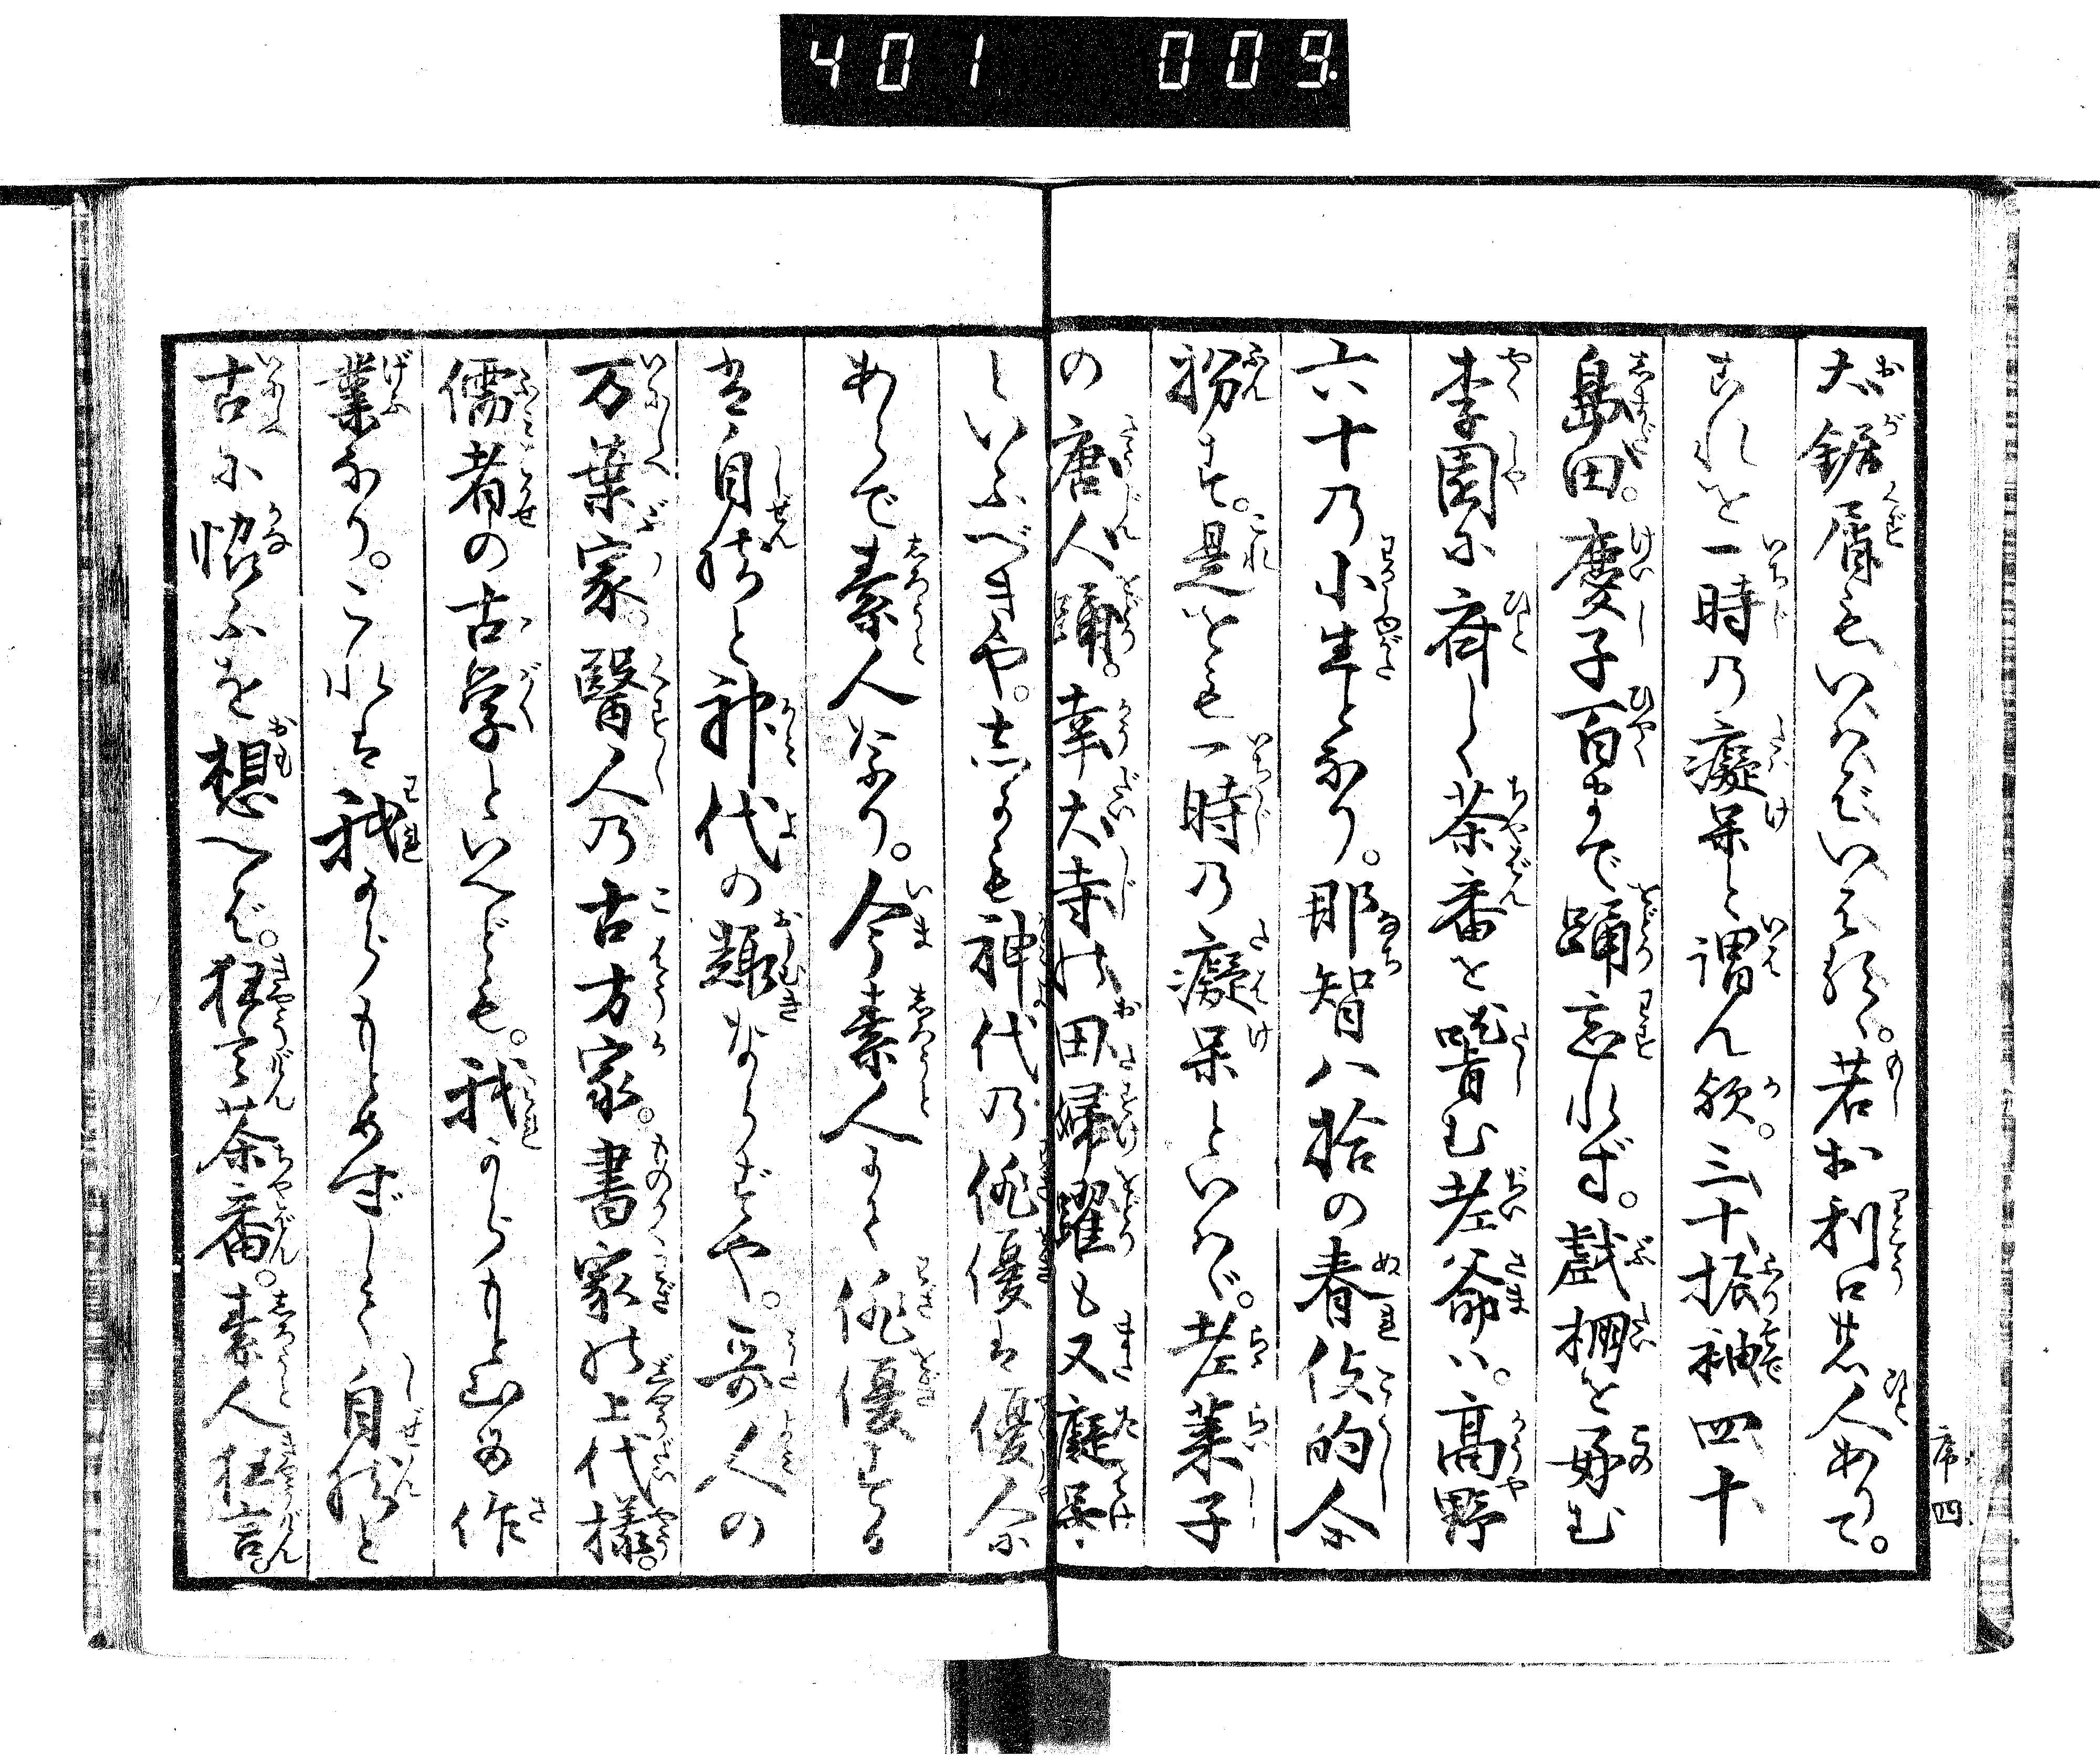 401 009
大鋸屑もいはばいへる。若し利口の人ありて。
これを一時の癡呆と謂ん歟。三十振袖四十
島田。慶子百まで踊忘れず。戯棚を好む
李園に斉しく茶番を嗜む老爺は。高野
六十の小生となり。那智八拾の春役的に
扮す。是をも一時の癡呆といはゞ。老莱子
の唐人踊。幸大寺の田婦躍も又癡呆
といふべきや。しかも神代の俳優は優に
あらで素人なり。今素人にて俳優する
は自然と神代の趣ならずや。哥人の
万葉家。醫人の古方家。書家の上代樣。
儒者の古学といへども。我からもと山の作
業なり。これは我からもとめずして自然と
古に協ふを想へば。狂言茶番。素人狂言。
序四